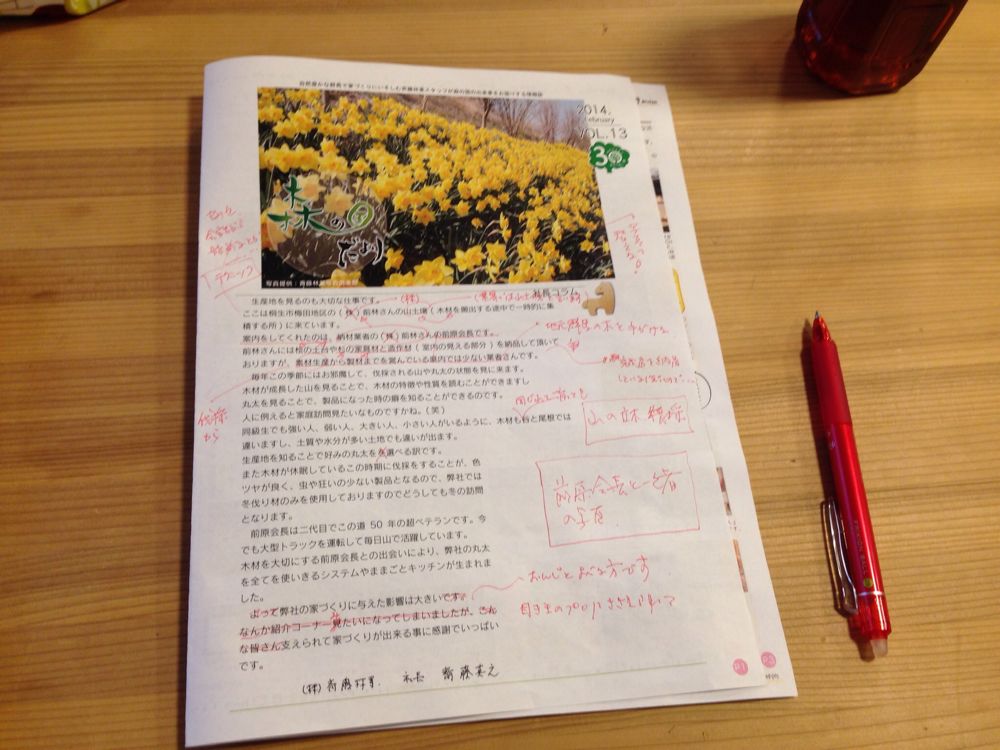 自然豊かな群馬で家づくりにいそしむ斉藤林業スタッフが森の国の出来事をお届けする情報誌
2014.
February
VOL.13
30
森林の国だより
写真提供:斉藤林業写真倶楽部
社長コラム
生産地を見るのも大切な仕事です。
(株)
ここは桐生市梅田地区の(株)前林さんの山土場(木材を搬出する途中で一時的に集
積する所)に来ています。
案内をしてくれたのは、納材業者の(株)前林さんの前原会長です。
前林さんには桧の土台や杉の家具材と造作材(室内の見える部分)を納品して頂いて
おりますが、素材生産から製材までを営んでいる県内では少ない業者さんです。
毎年この季節にはお邪魔して、伐採される山や丸太の状態を見に来ます。
木材が成長した山を見ることで、木材の特徴や性質を読むことができますし
丸太を見ることで、製品になった時の癖を知ることができるのです。
人に例えると家庭訪問見たいなものですかね。(笑)
同級生でも強い人、弱い人、大きい人、小さい人がいるように、木材も谷と尾根では
違いますし、土質や水分が多い土地でも違いが出ます。
生産地を知ることで好みの丸太を選べる訳です。
また木材が休眠しているこの時期に伐採をすることが、色
ツヤが良く、虫や狂いの少ない製品となるので、弊社では
冬伐り材のみを使用しておりますのでどうしても冬の訪問
となります。
前原会長は二代目でこの道 50 年の超ベテランです。今
でも大型トラックを運転して毎日山で活躍しています。
木材を大切にする前原会長との出会いにより、弊社の丸太
を全てを使いきるシステムやままごとキッチンが生まれま
した。
よって弊社の家づくりに与えた影響は大きいです。
なんか紹介コーナー見たいになってしまいましたが、こん
な皆さん支えられて家づくりが出来る事に感謝でいっぱい
です。
(株)斉藤林業 社長 齋藤英之
伐採
から
地元群馬の木を
山の立木
前原会長と一緒
の写真
P.1
P.3